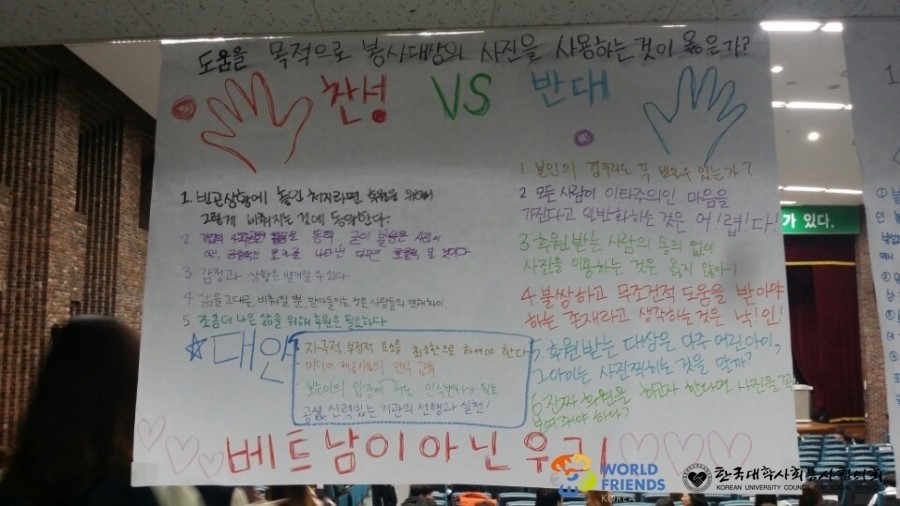 도움을 목적으로 봉사대상의 사진을 사용하는것이 옳은가?
찬성 VS 반대
1 빈곤상황에 놓인 처지라면 후원을 위해서
그렇게 비춰지는 것에 동의한다.
2
3 감정과 상황은 별개일 수 있다
4 삶을 그대로 비춰질 뿐, 받아들이는 것은 사람들의 견해차이
5 조금 더 나은 삶을 위해 후원은 필요하다
☆대안
자극적, 부정적 요소를 최소한으로 하여야 한다
미디어 인식 교육
보는이의 입장에
공신력있는 기관의 선행과 실천!
1 본인의 경우라도 꼭 있는가?
2 모든 사람이 이타주의인 마음을
가진다고 일반화하는 것은 어!렵!다!
3 후원 받는 사람의 동의 없이
사진을 이용하는 것은 옳지 않아!
4 불쌍하고 무조건적 도움을 받아야
하는 존재라고 생각하는것은 낙!인!
5. 후원받는 대상은 아주 어린아이,
그아이는 사진찍히는 것을 알까?
6 진짜 후원을 하고자 한다면 사진을 꼭
보여줘야 하나?
베트남이아닌우리
가 있다.
WORLD
FRIENDS
KOREA
한국대학사회봉사협의회
KOREAN UNIVERSITY COUNCIL